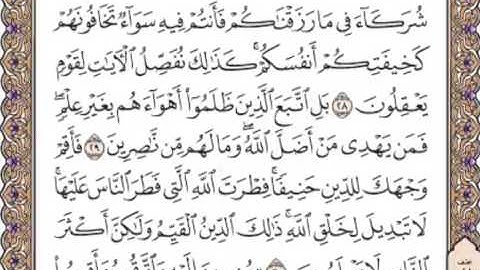 شُرَكَآءَ فِى مَا رَزَقْنَٰكُمْ فَأَنتُمْ فِيهِ سَوَآءٌ تَخَافُونَهُمْ
كَخِيفَتِكُمْ أَنفُسَكُمْ ۚ كَذَٰلِكَ نُفَصِّلُ ٱلْءَايَٰتِ لِقَوْمٍ
يَعْقِلُونَ ٢٨ بَلِ ٱتَّبَعَ ٱلَّذِينَ ظَلَمُوٓا۟ أَهْوَآءَهُم بِغَيْرِ عِلْمٍ ۖ
فَمَن يَهْدِى مَنْ أَضَلَّ ٱللَّهُ ۖ وَمَا لَهُم مِّن نَّٰصِرِينَ ٢٩ فَأَقِمْ
وَجْهَكَ لِلدِّينِ حَنِيفًا ۚ فِطْرَتَ ٱللَّهِ ٱلَّتِى فَطَرَ ٱلنَّاسَ عَلَيْهَا ۚ
لَا تَبْدِيلَ لِخَلْقِ ٱللَّهِ ۚ ذَٰلِكَ ٱلدِّينُ ٱلْقَيِّمُ وَلَٰكِنَّ أَكْثَرَ